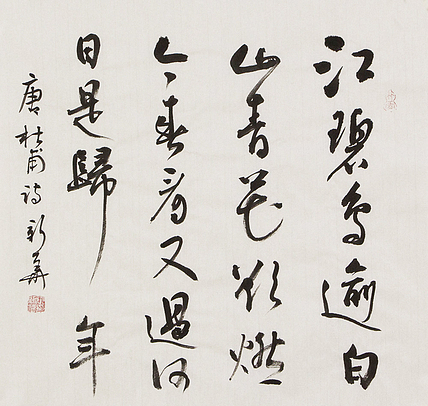 江碧鸟逾白
山青花欲燃
今春看又过何
日是歸年
唐杜甫诗新華